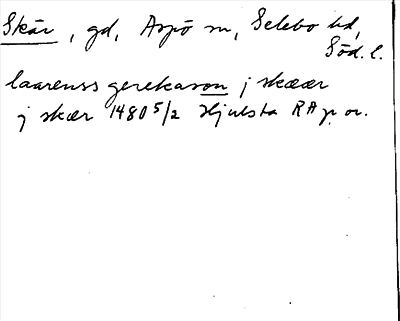 Skär, gd, Aspö sn, Selebo hd,
Söd. l.
laarenss gerekason j skæær
j skær 1480 5/2 Hjulsta RAp. or.